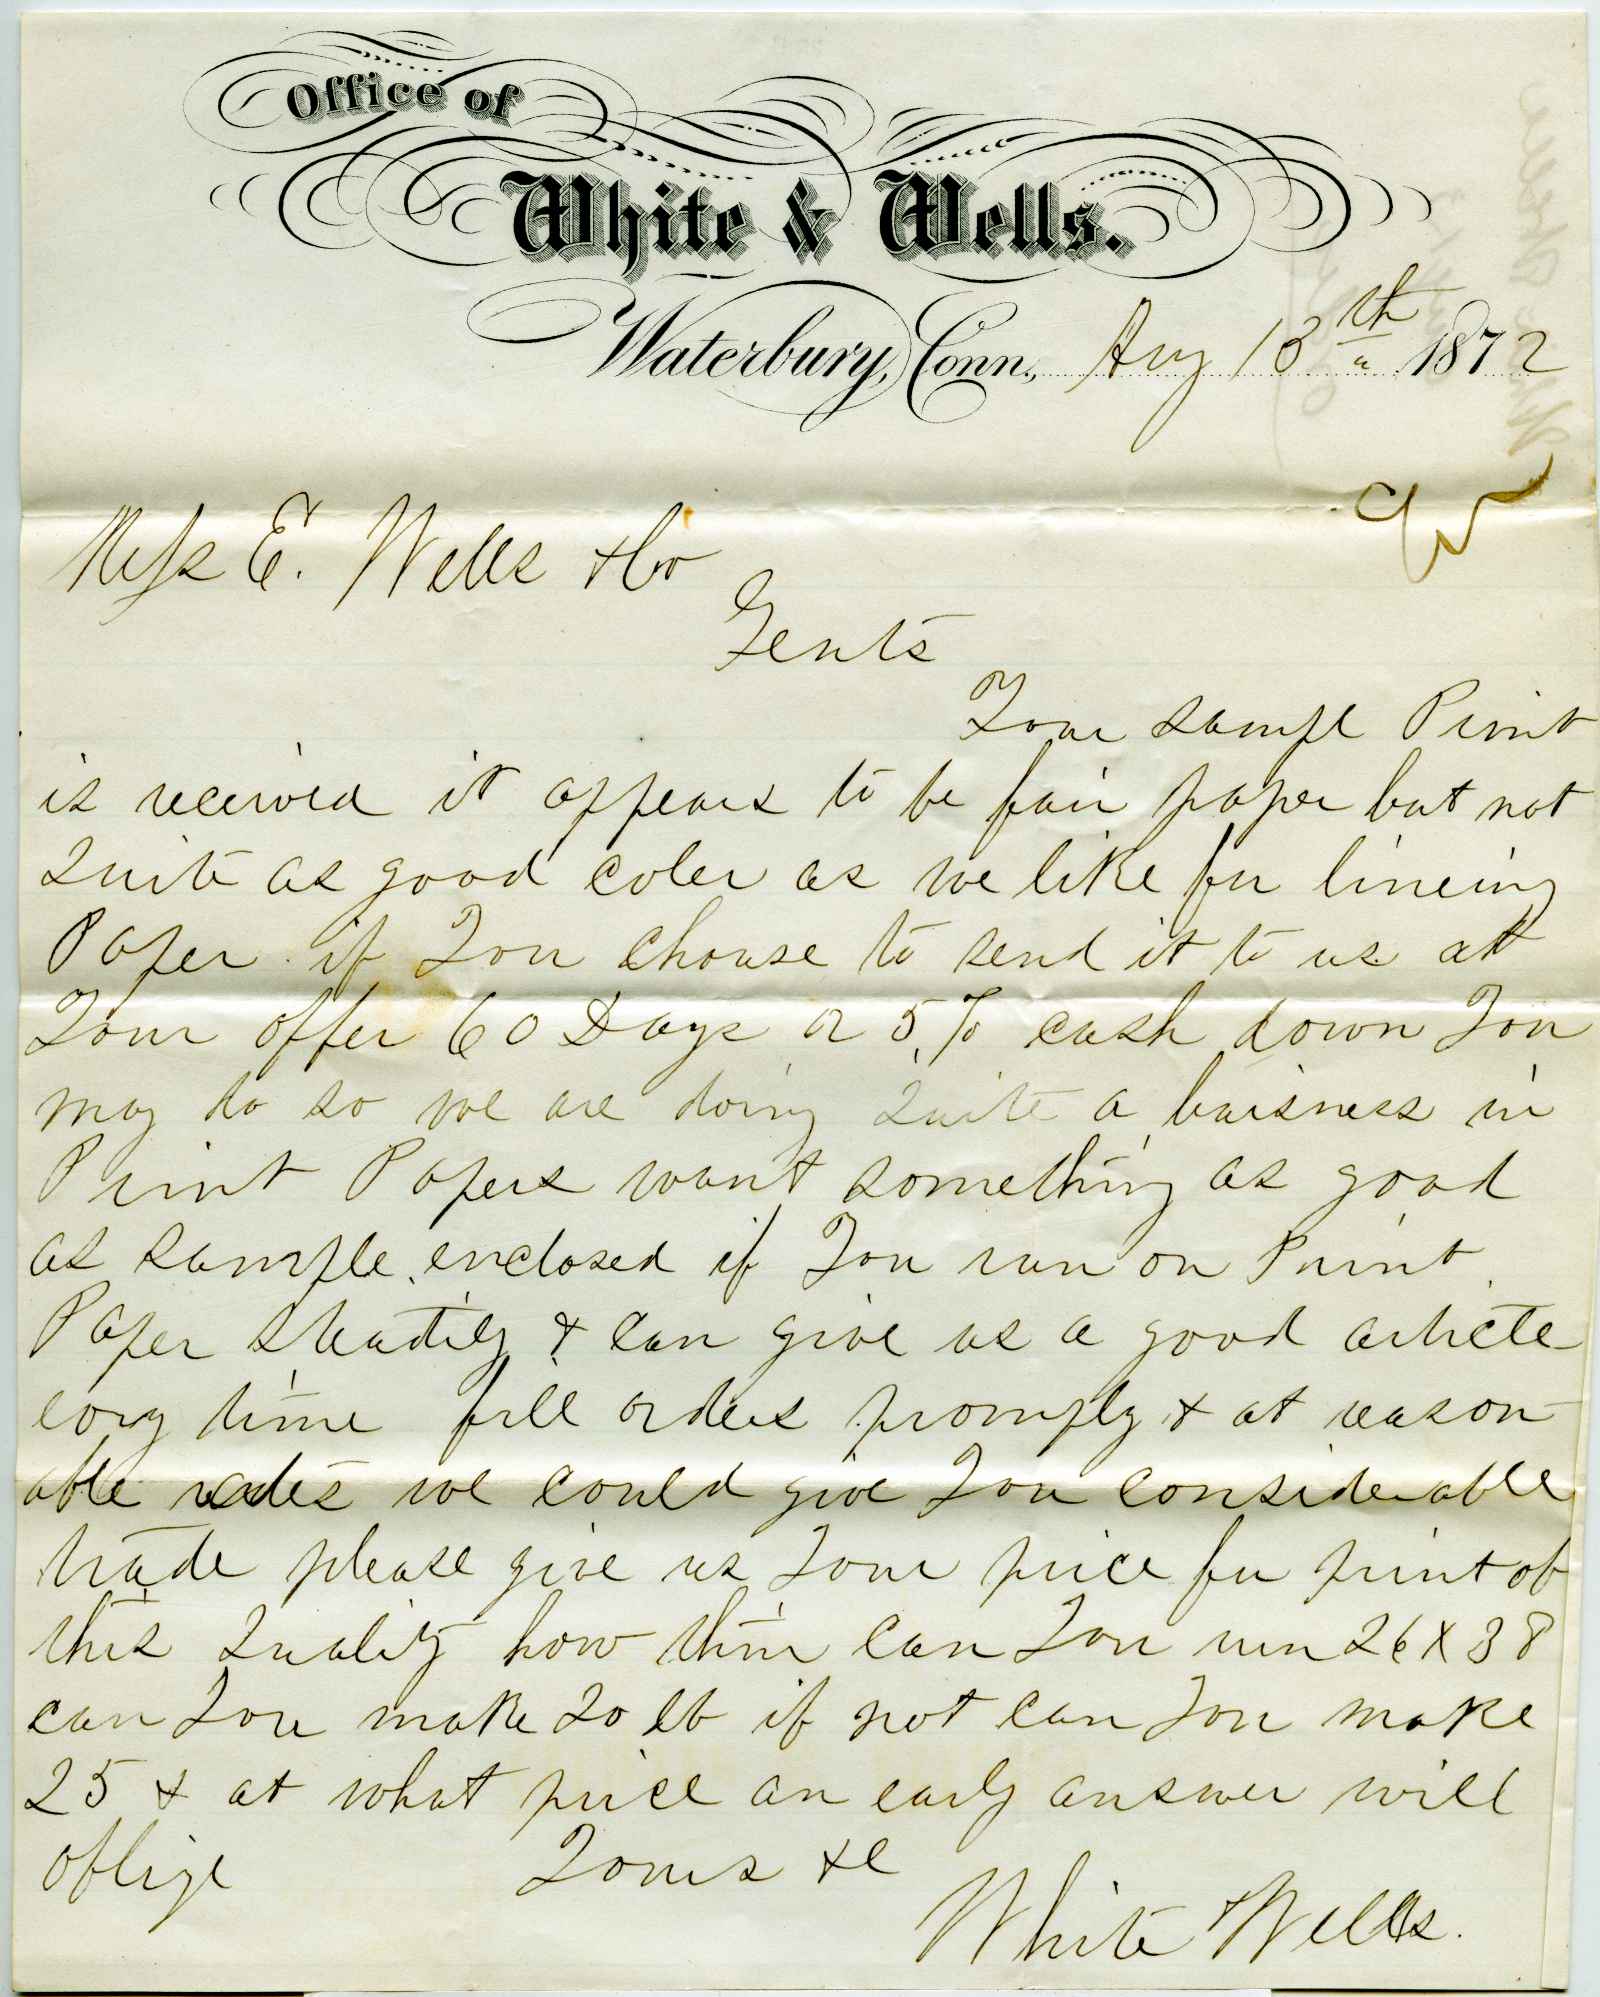 Office of
White & Wells.
Waterbury, Conn., Aug 13th 1872
Mess E. Wells & Co
Gents
Your sample Print
is received it appears to be fair paper but not
quite as good coler as we like for lineing
Paper if You chouse to send it to us at
Your offer 60 Days or 5% cash down You
may do so we are doing quite a buisness in
Print Papers want something as good
as sample enclosed if You run on Print
Paper steadily & can give us a good article
long time fill orders promply & at reason
able rates we could give You considerable
trade please give us Your price for print of
this quality how thin can You run 26 X 38
can You make 20 lb if not can You make
25 & at what price an early answer will
oblige Yours &c
White & Wells.